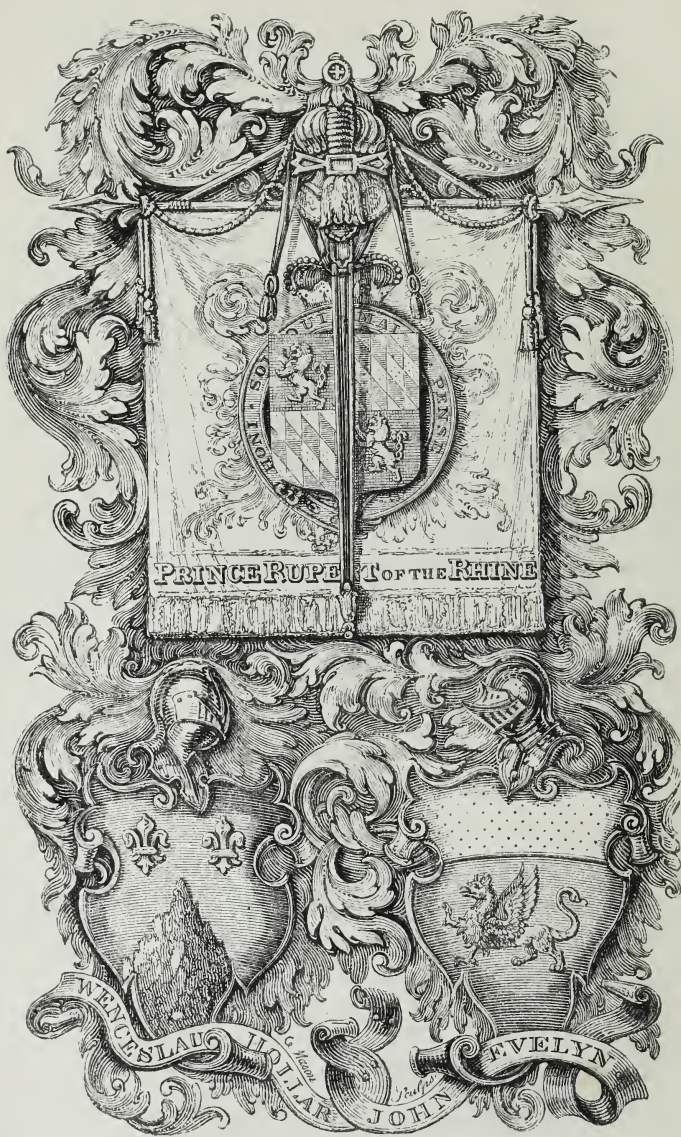 HONI SO
PENSE
PRINCE RUPERT OF THE RHINE
WENCESLAU HOLLAR
JOHN EVELYN